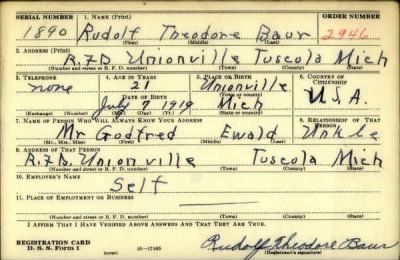 SERIAL NUMBER 1. NAME (Print) ORDER NUMBER
1890 Rudolf Theodore Baur 2946
(First) (Middle) (Last)
2. ADDRESS (Print)
R.F.D. Unionville Tuscola Mich
(Number and street or R. F. D. number) (Town) (County) (State)
3. TELEPHONE 4. AGE IN YEARS 5. PLACE OF BIRTH 6. COUNTRY OF CITIZENSHIP
none 21 Unionville
(Town or county)
DATE OF BIRTH
July 7 1919 Mich U.S.A.
(Exchange) (Number) (Mo.) (Day) (Yr.) (State or country)
7. NAME OF PERSON WHO WILL ALWAYS KNOW YOUR ADDRESS 8. RELATIONSHIP OF THAT PERSON
Mr Godfred Ewald Unkle
(Mr., Mrs., Miss) (First) (Middle) (Last)
9. ADDRESS OF THAT PERSON
R.F.D. Unionville Tuscola Mich
(Number and street or R. F. D. number) (Town) (County) (State)
10. EMPLOYER'S NAME
Self
11. PLACE OF EMPLOYMENT OR BUSINESS
(Number and street or R. F. D. number) (Town) (County) (State)
I AFFIRM THAT I HAVE VERIFIED ABOVE ANSWERS AND THAT THEY ARE TRUE.
REGISTRATION CARD
D. S. S. Form 1 (over) Rudolf Theodore Baur
(Registrant's signature)